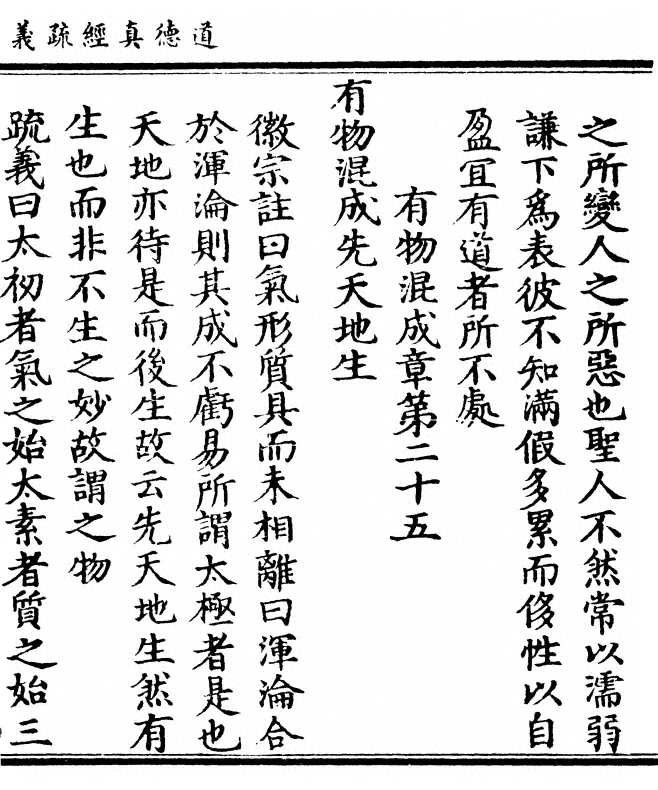 道德真經疏義
之所變人之所惡也聖人不然常以濡弱
謙下爲表彼不知滿假多累而侈性以自
盈宜有道者所不處
有物混成章第二十五
有物混成先天地生
徽宗註曰氣形質具而未相離曰渾淪合
於渾淪則其成不虧易所謂太極者是也
天地亦待是而後生故云先天地生然有
生也而非不生之妙故謂之物
疏義曰太初者氣之始太素者質之始三